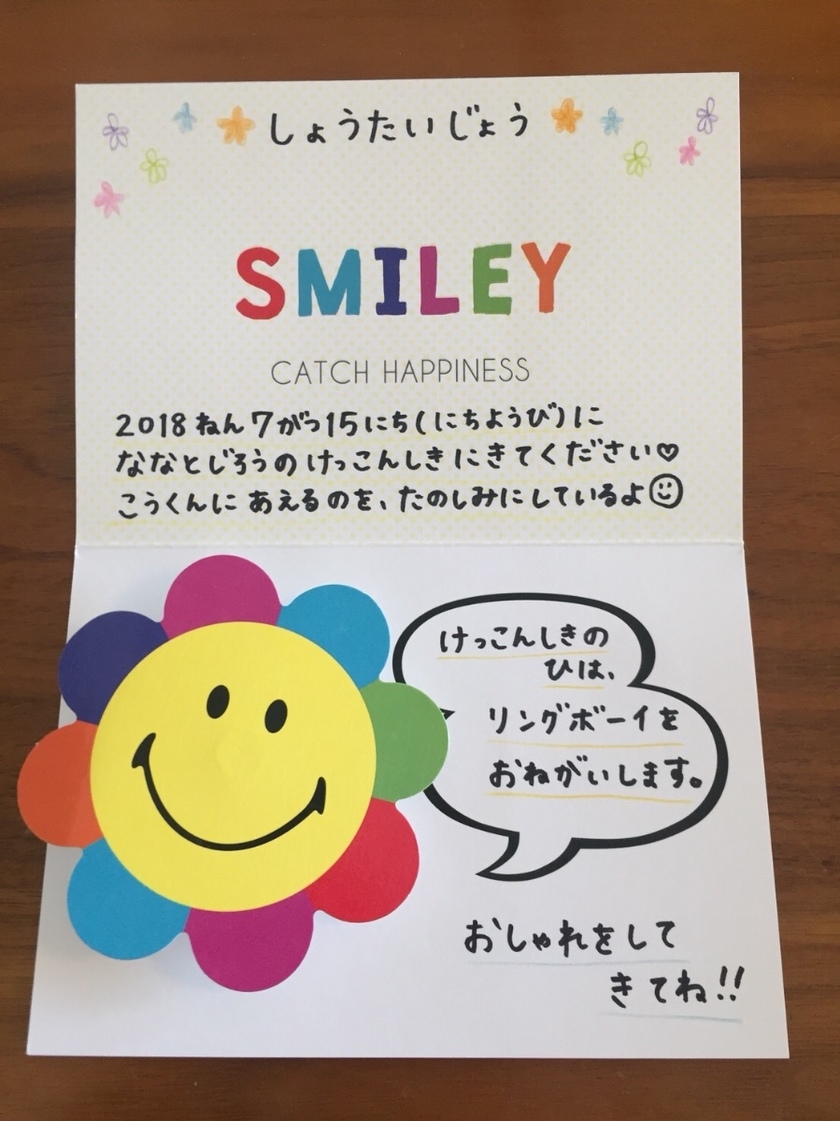 しょうたいじょう
SMILEY
CATCH HAPPINESS
2018ねん7がつ15にち(にちようび)に
ななとじろうのけっこんしきにきてください♡
こうくんにあえるのを、たのしみにしているよ☺
けっこんしきの
ひは、
リングボーイを
おねがいします。
おしゃれをして
きてね!!